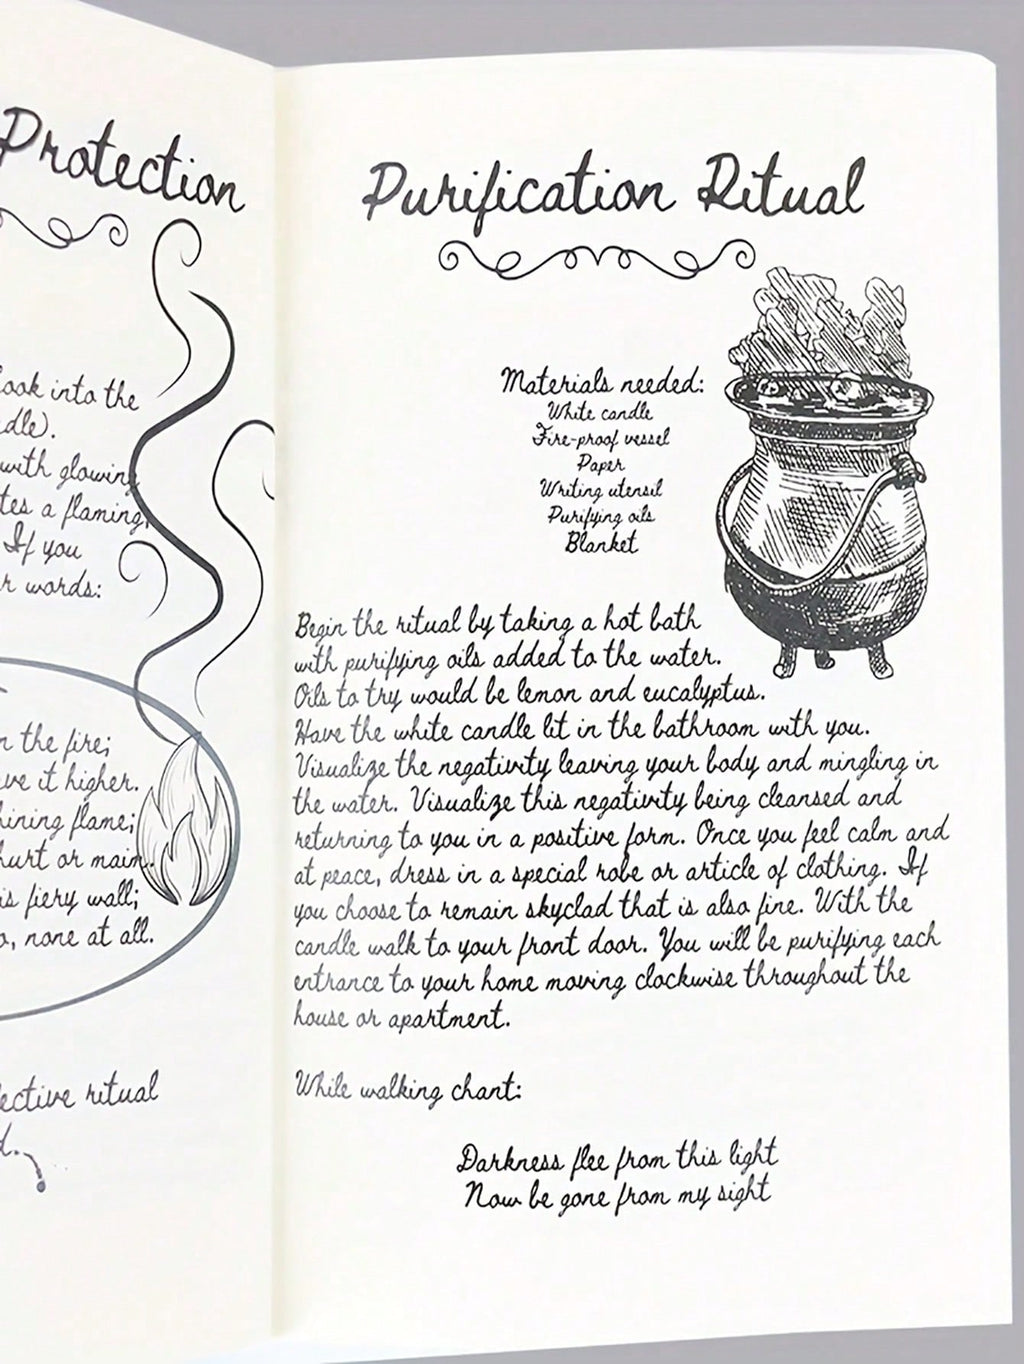 Protection
look into the
dle).
with glowing
tes a flaming,
If you
r words:
n the fire;
ve it higher.
hining flame;
hurt or maim.
is fiery wall;
o, none at all.
ective ritual
d.
Purification Ritual
Materials needed:
White candle
Fire-proof vessel
Paper
Writing utensil
Purifying oils
Blanket
Begin the ritual by taking a hot bath
with purifying oils added to the water.
Oils to try would be lemon and eucalyptus.
Have the white candle lit in the bathroom with you.
Visualize the negativity leaving your body and mingling in
the water. Visualize this negativity being cleansed and
returning to you in a positive form. Once you feel calm and
at peace, dress in a special robe or article of clothing. If
you choose to remain skyclad that is also fine. With the
candle walk to your front door. You will be purifying each
entrance to your home moving clockwise throughout the
house or apartment.
While walking chant:
Darkness flee from this light
Now be gone from my sight